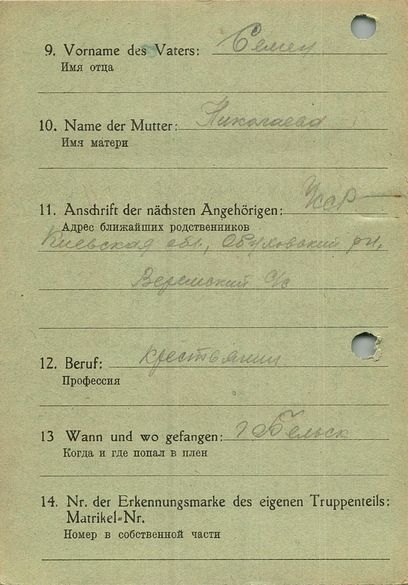 9. Vorname des Vaters: Семен
Имя отца
10. Name der Mutter: Николаева
Имя матери
11. Anschrift der nächsten Angehörigen: УССР
Адрес ближайших родственников
Киевская обл., Обуховский р-н,
Веремский с/с
12. Beruf: крестьянин
Профессия
13 Wann und wo gefangen: г Бельск
Когда и где попал в плен
14. Nr. der Erkennungsmarke des eigenen Truppenteils:
Matrikel-Nr.
Номер в собственной части